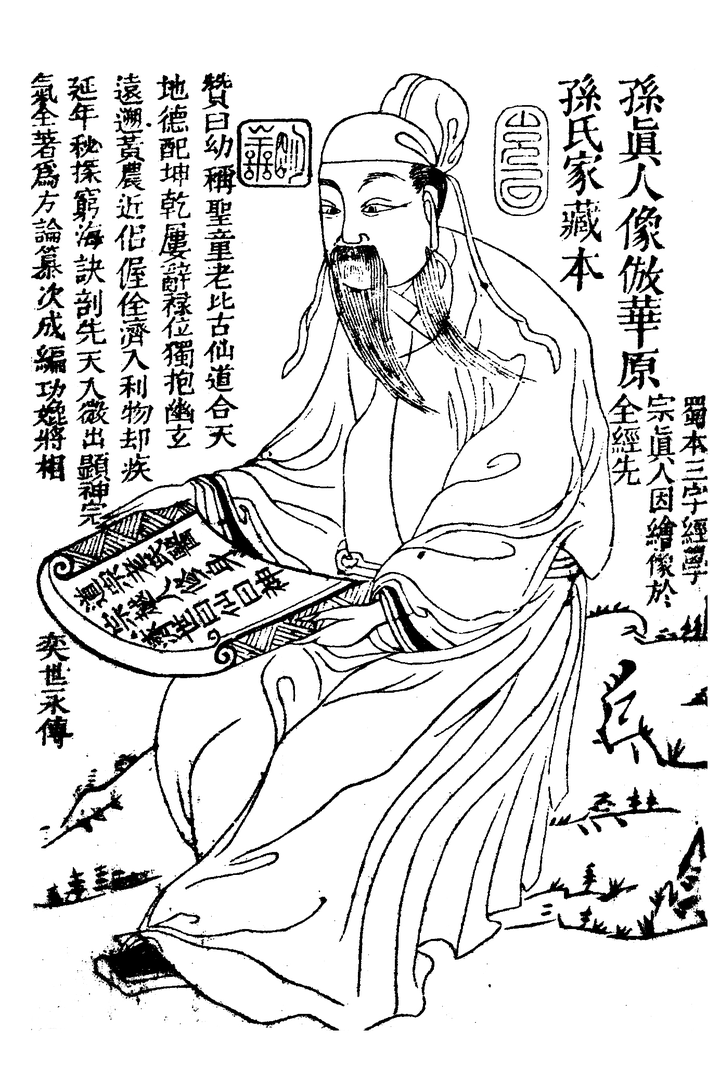 孫眞人像倣華原
孫氏家藏本
蜀本三字經學
宗眞人因繪像於
全經先
贊曰幼稱聖童老比古仙道合天
地德配坤乾屢辭祿位獨抱幽玄
遠遡黃農近侶偓佺濟人利物却疾
延年秘探窮海訣剖先天入微出顯神完
氣全著爲方論纂次成編功媲將相
奕世永傳